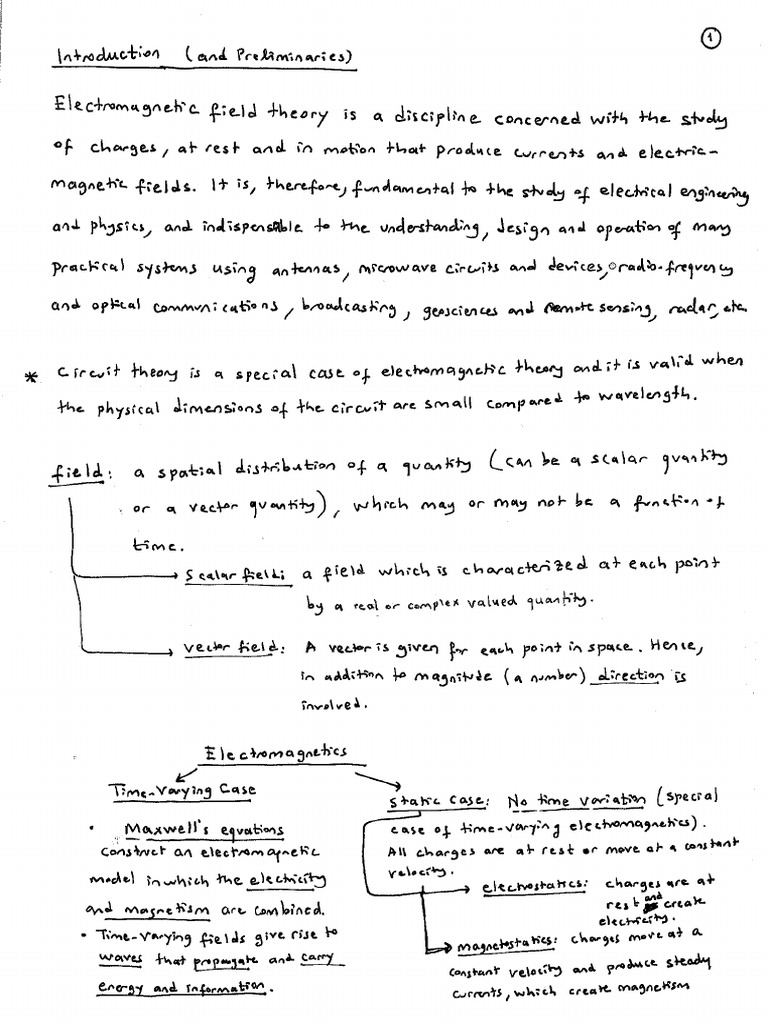 1
Introduction (and Preliminaries)
Electromagnetic field theory is a discipline concerned with the study
of charges, at rest and in motion that produce currents and electric-
magnetic fields. It is, therefore, fundamental to the study of electrical engineering
and physics, and indispensible to the understanding, design and operation of many
practical systems using antennas, microwave circuits and devices, radio-frequency
and optical communications, broadcasting, geosciences and remote sensing, radar, etc.
* Circuit theory is a special case of electromagnetic theory and it is valid when
the physical dimensions of the circuit are small compared to wavelength.
field: a spatial distribution of a quantity (can be a scalar quantity
or a vector quantity), which may or may not be a function of
time.
Scalar field: a field which is characterized at each point
by a real or complex valued quantity.
vector field: A vector is given for each point in space. Hence,
in addition to magnitude (a number) direction is
involved.
Electromagnetics
Time-Varying Case
• Maxwell's equations
construct an electromagnetic
model in which the electricity
and magnetism are combined.
• Time-varying fields give rise to
waves that propagate and carry
energy and information.
Static Case: No time variation (special
case of time-varying electromagnetics).
All charges are at rest or move at a constant
velocity.
electrostatics: charges are at
rest and create
electricity.
magnetostatics: charges move at a
constant velocity and produce steady
currents, which create magnetism